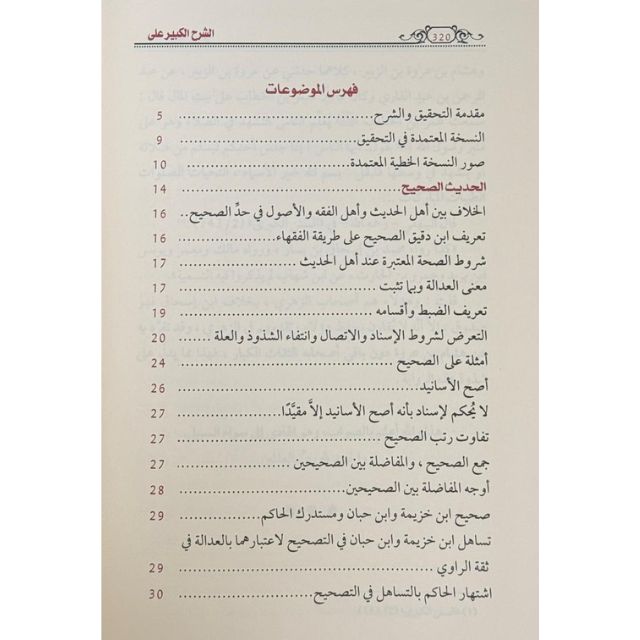 الشرح الكبير على
320
فهرس الموضوعات
مقدمة التحقيق والشرح .......... 5
النسخة المعتمدة في التحقيق .......... 9
صور النسخة الخطية المعتمدة .......... 10
الحديث الصحيح .......... 14
الخلاف بين أهل الحديث وأهل الفقه والأصول في حدِّ الصحيح .. 16
تعريف ابن دقيق الصحيح على طريقة الفقهاء .......... 16
شروط الصحة المعتبرة عند أهل الحديث .......... 17
معنى العدالة وبما تثبت .......... 17
تعريف الضبط وأقسامه .......... 19
التعرض لشروط الإسناد والاتصال وانتفاء الشذوذ والعلة ....... 20
أمثلة على الصحيح .......... 24
أصح الأسانيد .......... 26
لا يُحكم لإسناد بأنه أصح الأسانيد إلاَّ مقيَّدًا .......... 27
تفاوت رتب الصحيح .......... 27
جمع الصحيح ، والمفاضلة بين الصحيحين .......... 27
أوجه المفاضلة بين الصحيحين .......... 28
صحيح ابن خزيمة وابن حبان ومستدرك الحاكم .......... 29
تساهل ابن خزيمة وابن حبان في التصحيح لاعتبارهما بالعدالة في
ثقة الراوي .......... 29
اشتهار الحاكم بالتساهل في التصحيح .......... 30